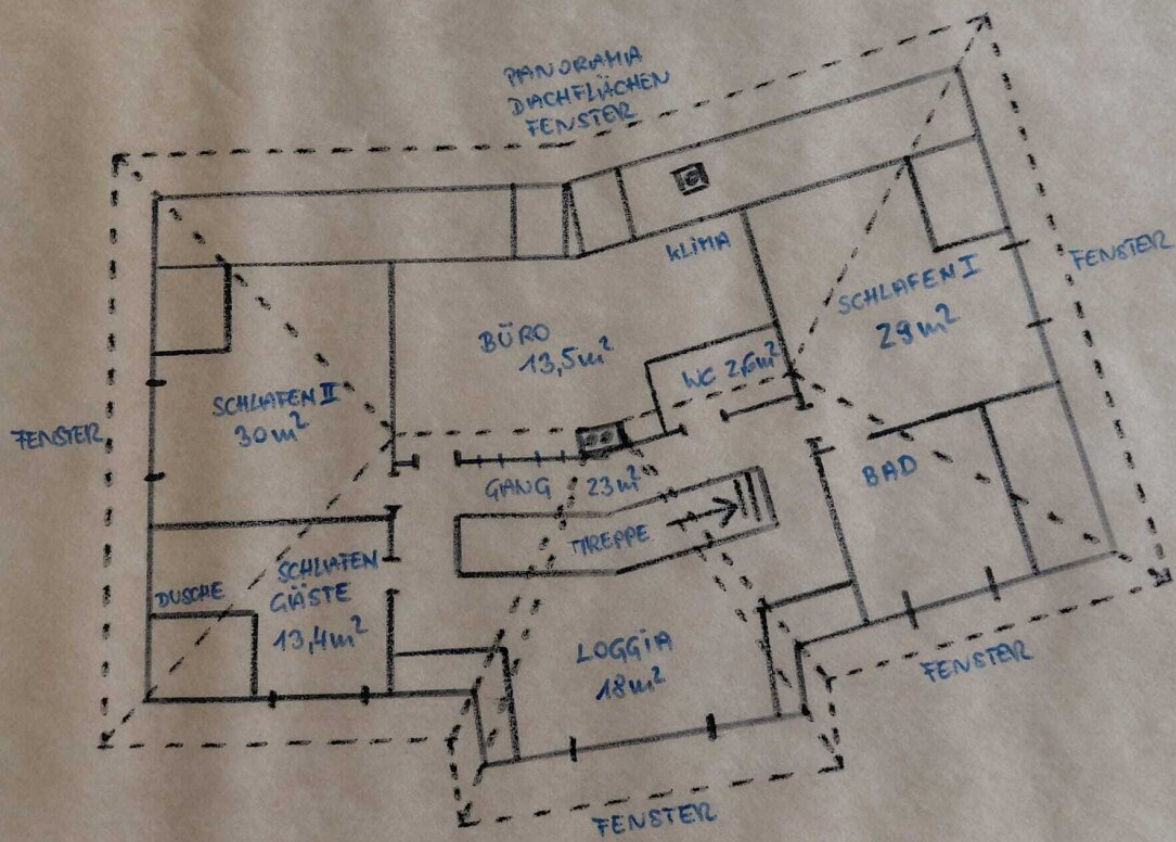 PANORAMA
DACHFLÄCHEN
FENSTER
KLIMA
FENSTER
SCHLAFEN I
29m²
BÜRO
13,5m²
WC 2,6m²
SCHLAFEN II
30m²
FENSTER
GANG 23m²
BAD
TREPPE
DUSCHE
SCHLAFEN
GÄSTE
13,4m²
LOGGIA
18m²
FENSTER
FENSTER